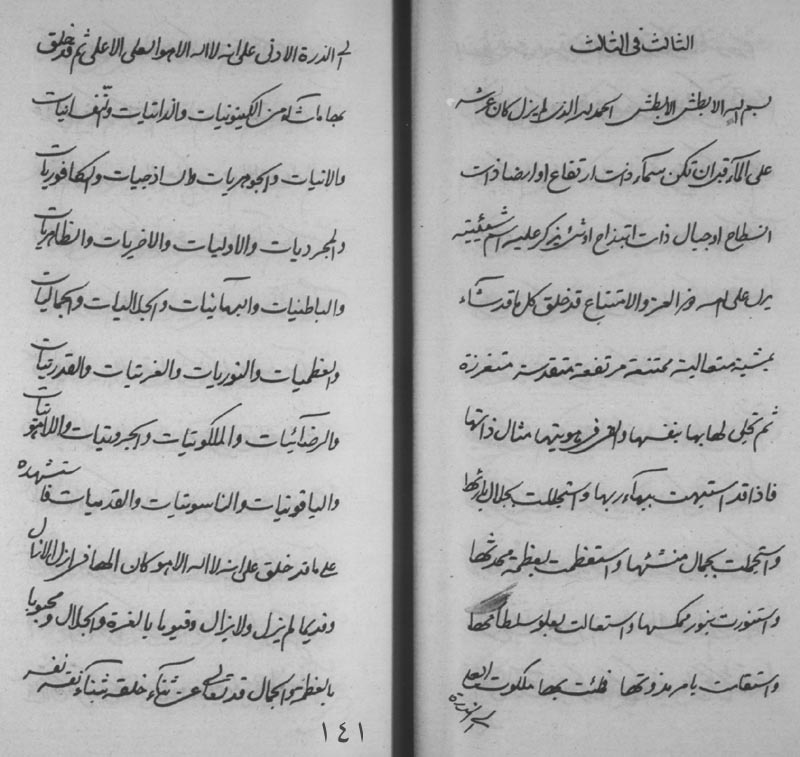 الثالث فی الثالث
بسم الله الابطش الابطش الحمد لله الذی لم یزل کان عرشه
علی الماء قبل ان تکن سماء ذات ارتفاع او ارضا ذات
انسطاح او جبال ذات ابتذاخ او شیء یذکر علیه اسم شیئیته
العز والامتناع قد خلق کل ما قد شاء
بمشیة متعالیة ممتنعة مرتفعة متقدسة متعززة
ثم تجلی لها بها بنفسها والقی فی هویتها مثال ذاتها
فاذا قد استبهت ببهاء ربها واستجللت بجلال بارئها
واستجملت بجمال منشئها واستعظمت بعظمة محدثها
واستنورت بنور ممکنها واستعالت بعلو سلطانها
واستقامت بامر مذوتها ملکوت العلی
الی الذرة
الی الذرة الادنی علی انه لا اله الا هو العلی الاعلی ثم قد خلق
بها ما شاء من الکینونیات والذاتیات والنفسانیات
والانیات والجوهریات والساذجیات والکافوریات
والمجردیات والاولیات والاخریات والظاهریات
والباطنیات والبهائیات والجلالیات والجمالیات
والعظمیات والنوریات والعزتیات والقدرتیات
والرضائیات والملکوتیات والجبروتیات واللاهوتیات
والیاقوتیات والناسوتیات والقدمیات فاستشهده
علی ما قد خلق علی انه لا اله الا هو کان الها فی ازل الازال
وقدیما لم یزل ولا یزال وقیوما بالعزة والجلال ومحبوبا
بالعظمة والجمال قد تعالی عن ثناء خلقه بثناء نفسه نفسه
١٤١